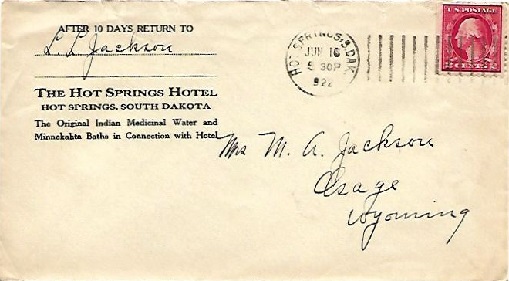 AFTER 10 DAYS RETURN TO
L. L. Jackson
THE HOT SPRINGS HOTEL
HOT SPRINGS, SOUTH DAKOTA
The Original Indian Medicinal Water and
Minnekahta Baths in Connection with Hotel
HOT SPRINGS, S. DAK.
JUN 16
5 30P
922
U.S. POSTAGE
2 CENTS 2
Mrs M. A. Jackson
Osage
Wyoming